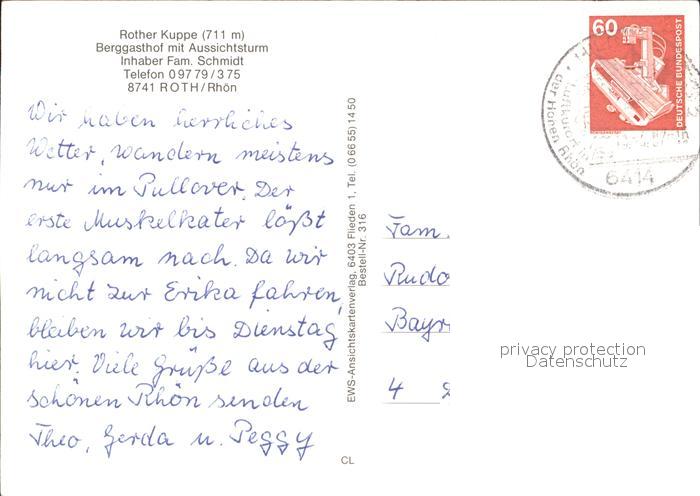 Rother Kuppe (711 m)
Berggasthof mit Aussichtsturm
Inhaber Fam. Schmidt
Telefon 0 97 79 / 3 75
8741 R O T H / Rhön
Wir haben herrliches
Wetter, wandern meistens
nur im Pullover. Der
erste Muskelkater läßt
langsam nach. Da wir
nicht zur Erika fahren,
bleiben wir bis Dienstag
hier. Viele Grüße aus der
schönen Rhön senden
Theo, Gerda u. Peggy
EWS-Ansichtskartenverlag, 6403 Flieden 1, Tel. (0 66 55) 14 50
Bestell-Nr. 316
CL
60
DEUTSCHE BUNDESPOST
Luftkurort
der Hohen Rhön
6414
Fam.
Rudo
Bayr
4
privacy protection
Datenschutz